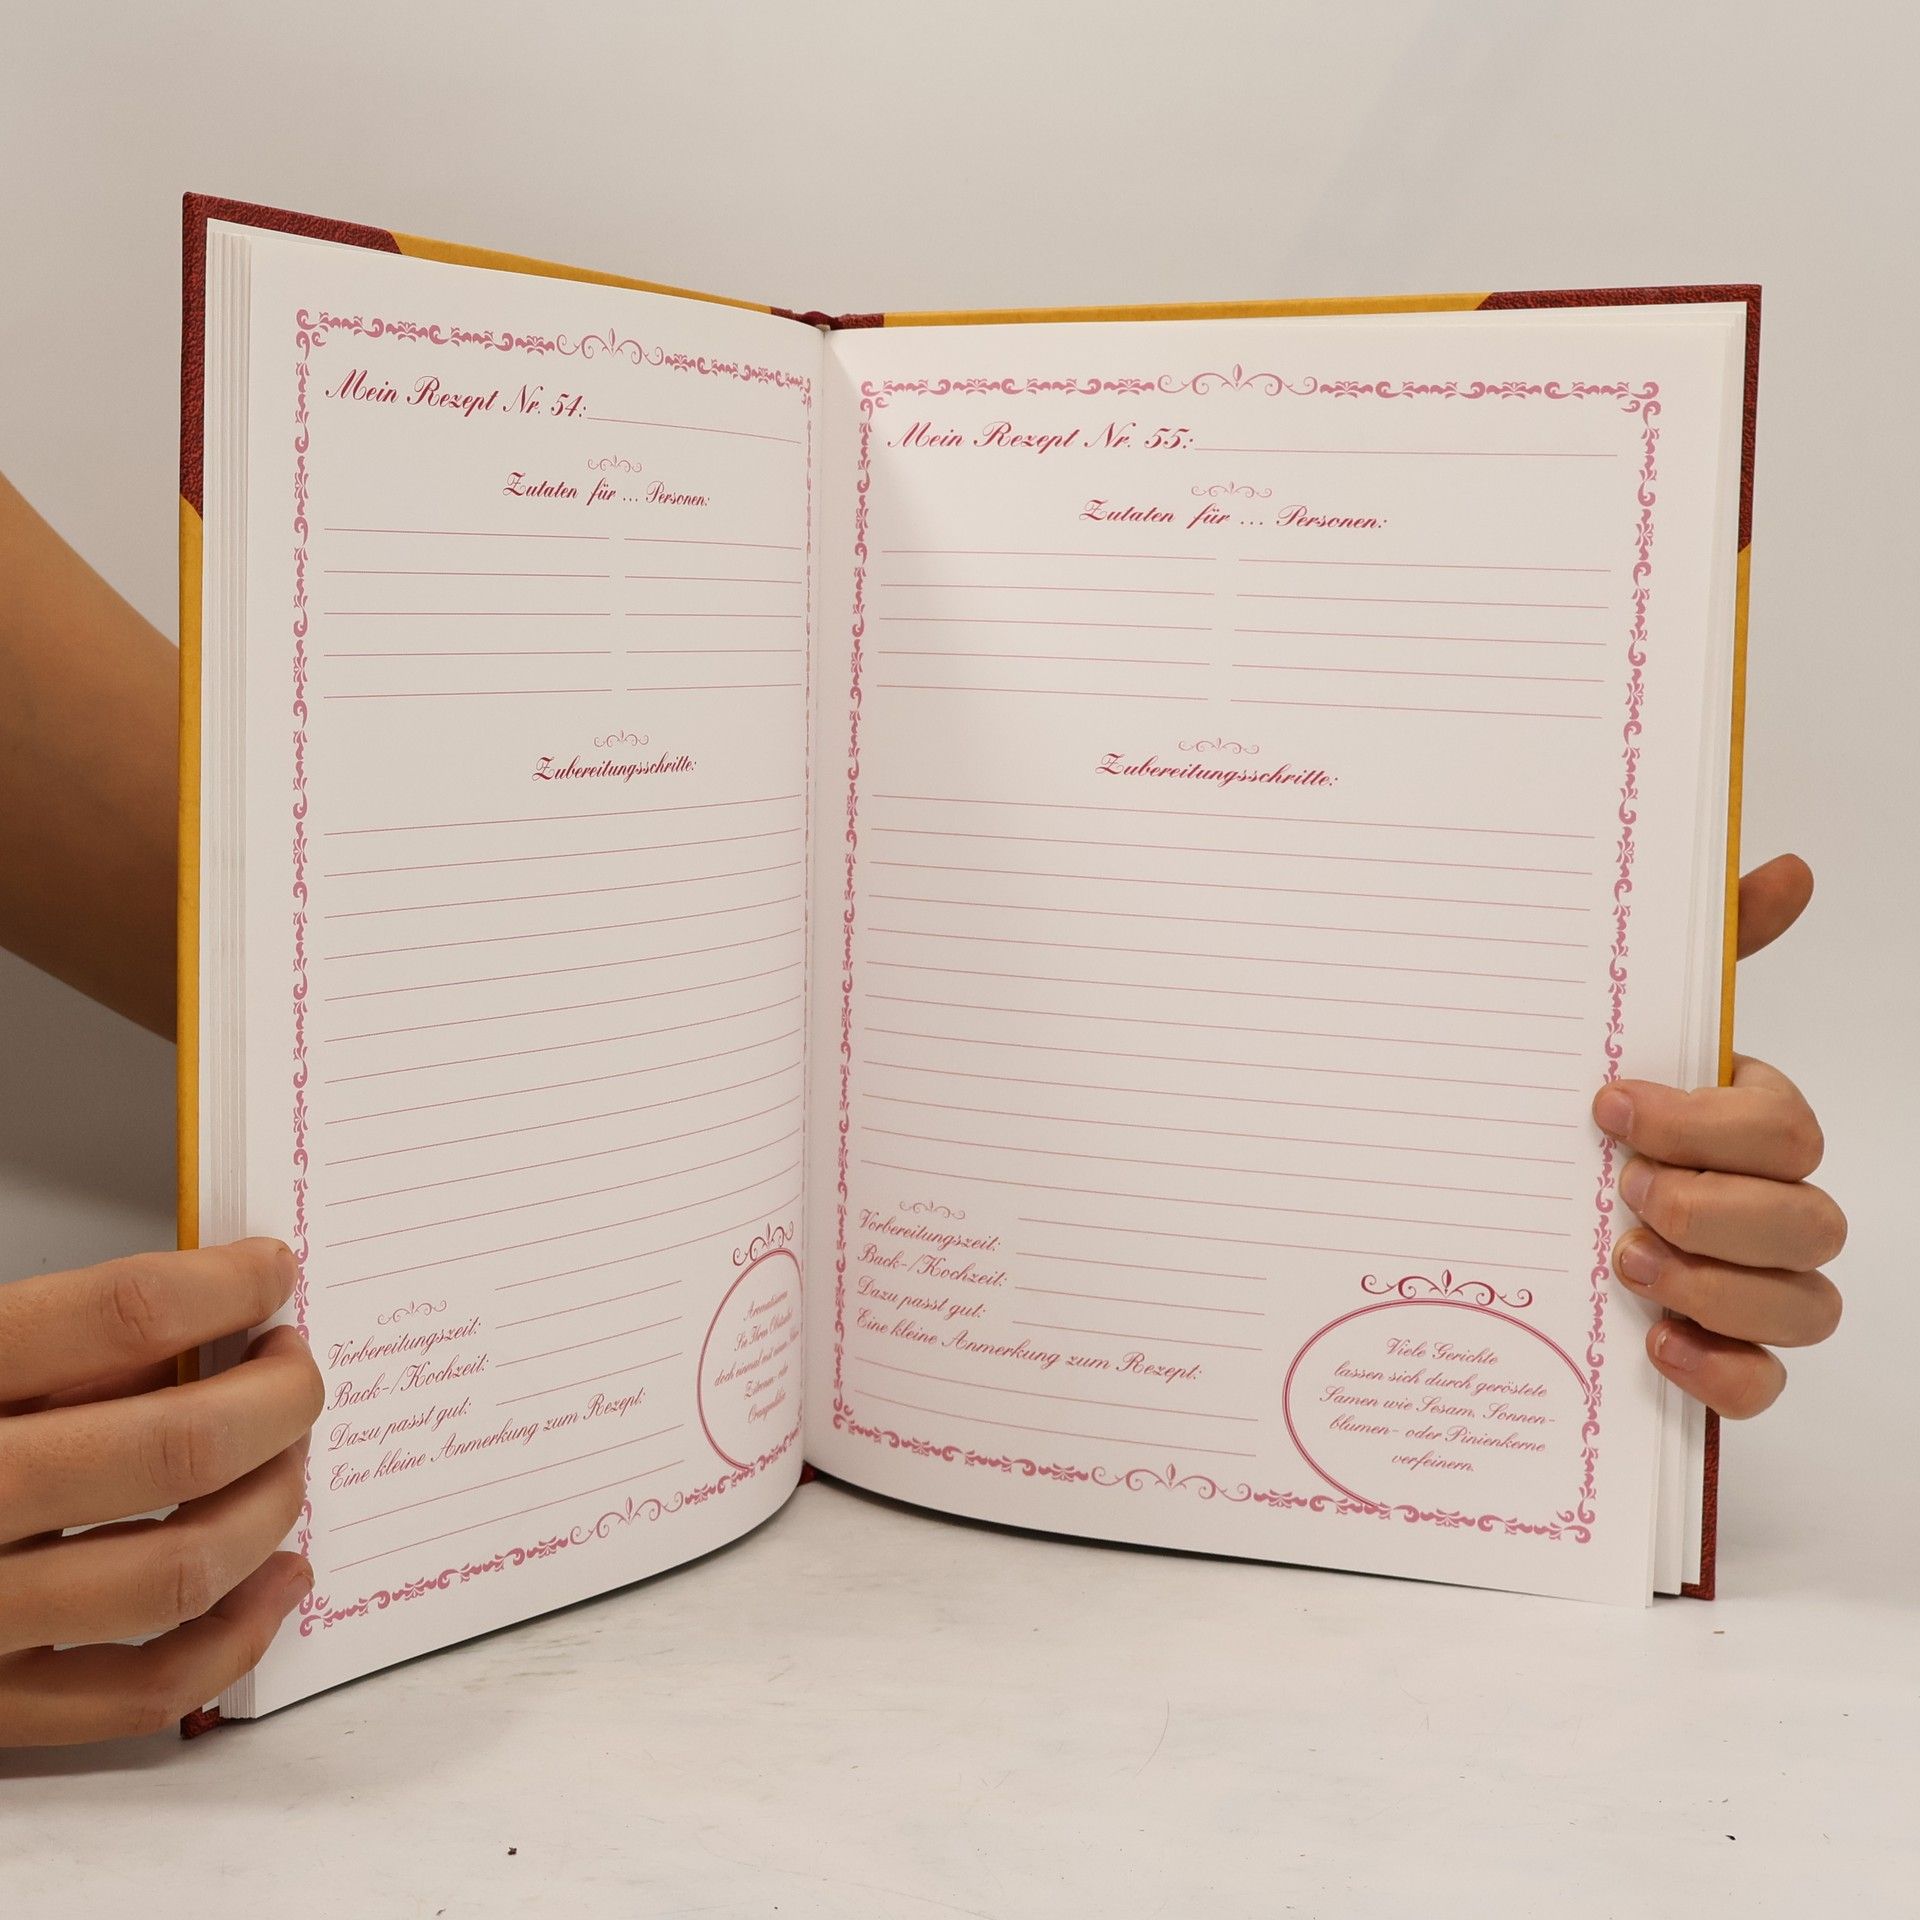 Mein Rezept Nr. 54:
Zutaten für ... Personen:
Zubereitungsschritte:
Vorbereitungszeit:
Back-/Kochzeit:
Dazu passt gut:
Eine kleine Anmerkung zum Rezept:
Aromatisieren
Sie Ihren
doch einmal mit
Zitronen- oder
Mein Rezept Nr. 55:
Zutaten für ... Personen:
Zubereitungsschritte:
Vorbereitungszeit:
Back-/Kochzeit:
Dazu passt gut:
Eine kleine Anmerkung zum Rezept:
Viele Gerichte
lassen sich durch geröstete
Samen wie Sesam, Sonnen-
blumen- oder Pinienkerne
verfeinern.